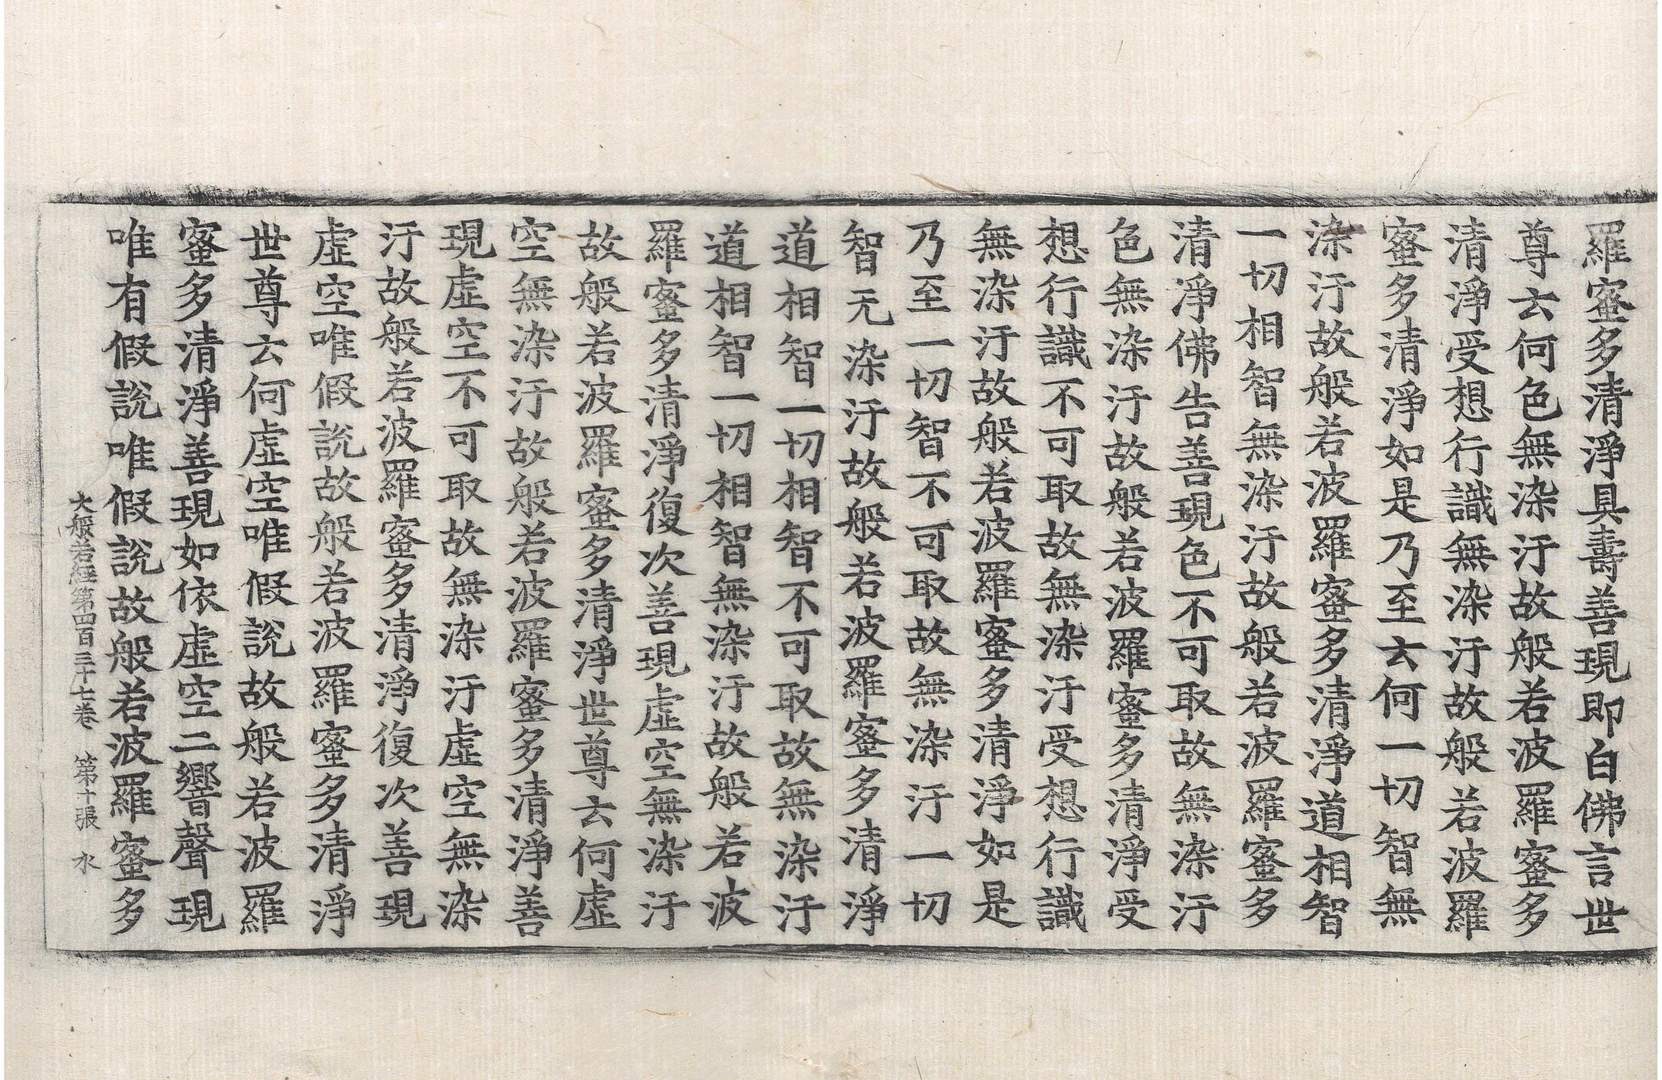 羅蜜多清淨具壽善現即白佛言世
尊云何色無染汙故般若波羅蜜多
清淨受想行識無染汙故般若波羅
蜜多清淨如是乃至云何一切智無
染汙故般若波羅蜜多清淨道相智
一切相智無染汙故般若波羅蜜多
清淨佛告善現色不可取故無染汙
色無染汙故般若波羅蜜多清淨受
想行識不可取故無染汙受想行識
無染汙故般若波羅蜜多清淨如是
乃至一切智不可取故無染汙一切
智无染汙故般若波羅蜜多清淨
道相智一切相智不可取故無染汙
道相智一切相智無染汙故般若波
羅蜜多清淨復次善現虛空無染汙
故般若波羅蜜多清淨世尊云何虛
空無染汙故般若波羅蜜多清淨善
現虛空不可取故無染汙虛空無染
汙故般若波羅蜜多清淨復次善現
虛空唯假說故般若波羅蜜多清淨
世尊云何虛空唯假說故般若波羅
蜜多清淨善現如依虛空二響聲現
唯有假說唯假說故般若波羅蜜多
大般若經第四百三十七卷 第十張 水